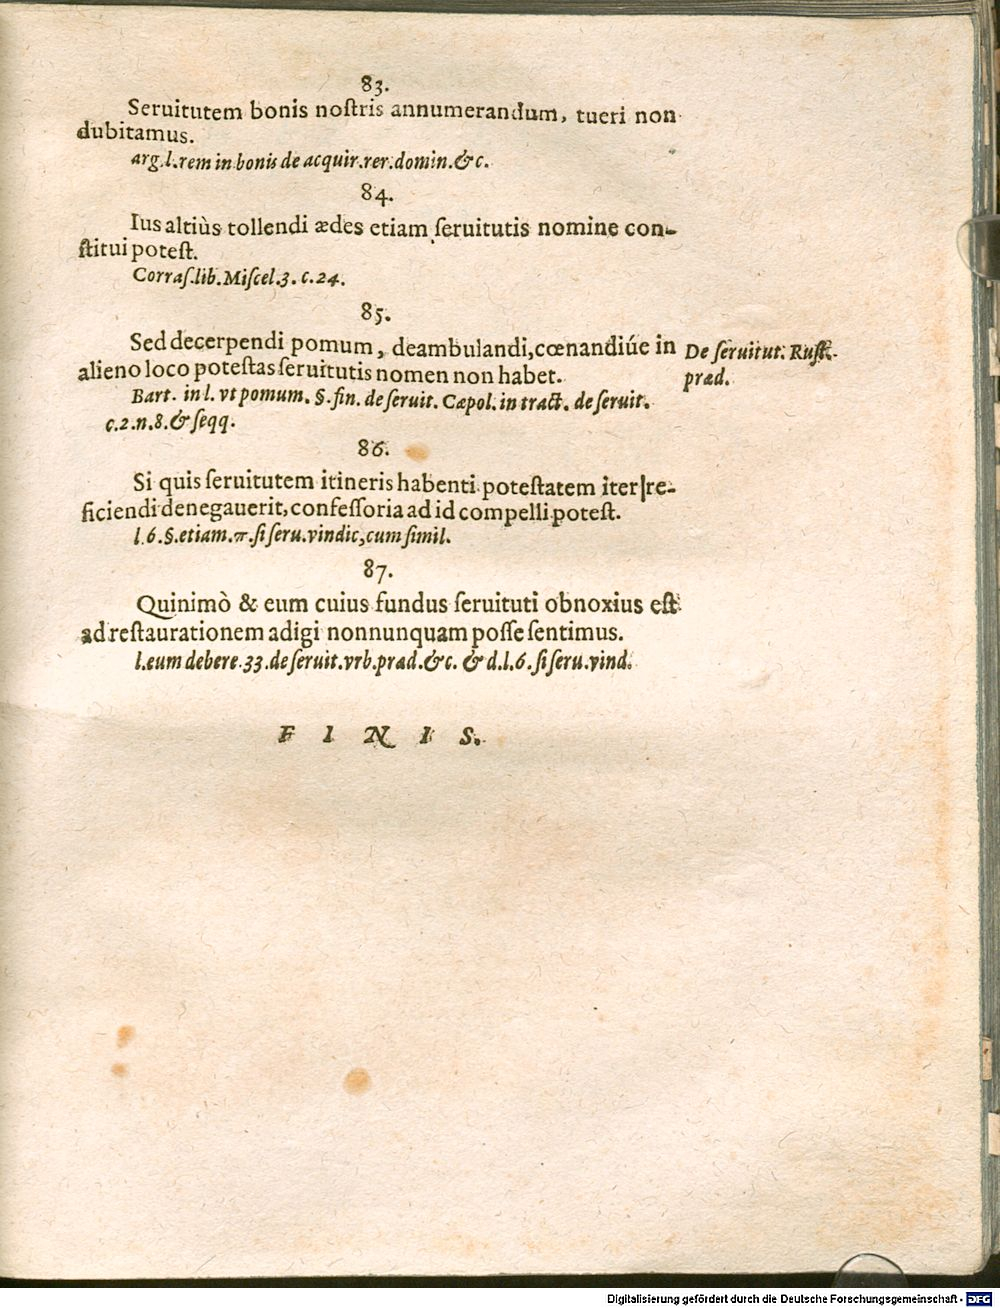 83.
Seruitutem bonis noſtris annumerandum, tueri non
dubitamus.
arg.l.rem in bonis de acquir.rer.domin.&c.
84.
Ius altiùs tollendi ædes etiam ſeruitutis nomine con-
ſtitui poteſt.
Corraſ.lib.Miſcel.3.c.24.
85.
Sed decerpendi pomum, deambulandi, cœnandiúe in
alieno loco poteſtas ſeruitutis nomen non habet.
De ſeruitut. Ruſt.
præd.
Bart. in l. vt pomum. §. fin. de ſeruit. Cæpol. in tract. de ſeruit.
c.2.n.8.& ſeqq.
86.
Si quis ſeruitutem itineris habenti poteſtatem iter re-
ficiendi denegauerit, confeſſoria ad id compelli poteſt.
l.6.§.etiam.π.ſi ſeru.vindic,cum ſimil.
87.
Quinimò & eum cuius fundus ſeruituti obnoxius eſt
ad reſtaurationem adigi nonnunquam poſſe ſentimus.
l.eum debere.33.de ſeruit.vrb.præd.&c. & d.l.6.ſi ſeru.vind.
FINIS.
Digitalisierung gefördert durch die Deutsche Forschungsgemeinschaft - DFG